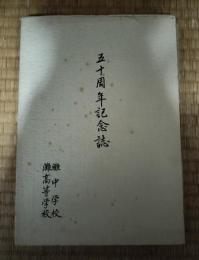 五十周年記念誌
灘中学校
灘高等学校